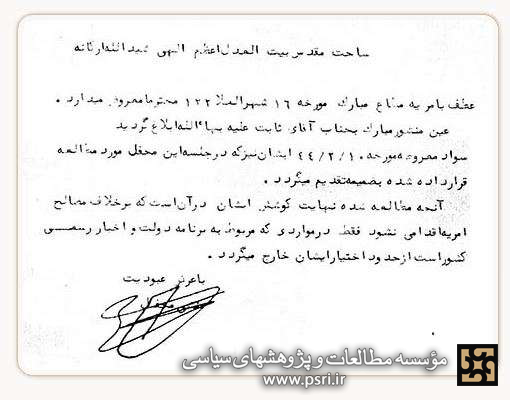 ساحت مقدس بیت العدل اعظم الهی شیدالله ارکانه
عطف بامریه مطاع مبارک مورخه ١٦ شهرالعلا ١٢٢ محترما معروض میدارد .
عین منشور مبارک بجناب آقای ثابت علیه بهاءالله ابلاغ گردید
سواد معروضه مورخه ٤٤/٢/١٠ ایشان نیز که در جلسه این محفل مورد مطالعه
قرار داده شده بضمیمه تقدیم میگردد .
آنچه مطالعه شده نهایت کوشش ایشان در آن است که برخلاف مصالح
امریه اقدامی نشود فقط در مواردی که مربوط به برنامه دولت و اخبار رسمی
کشور است از حدود اختیار ایشان خارج میگردد .
با عرض عبودیت
منشی محفل
مؤسسه مطالعات و پژوهشهای سیاسی
www.psri.ir